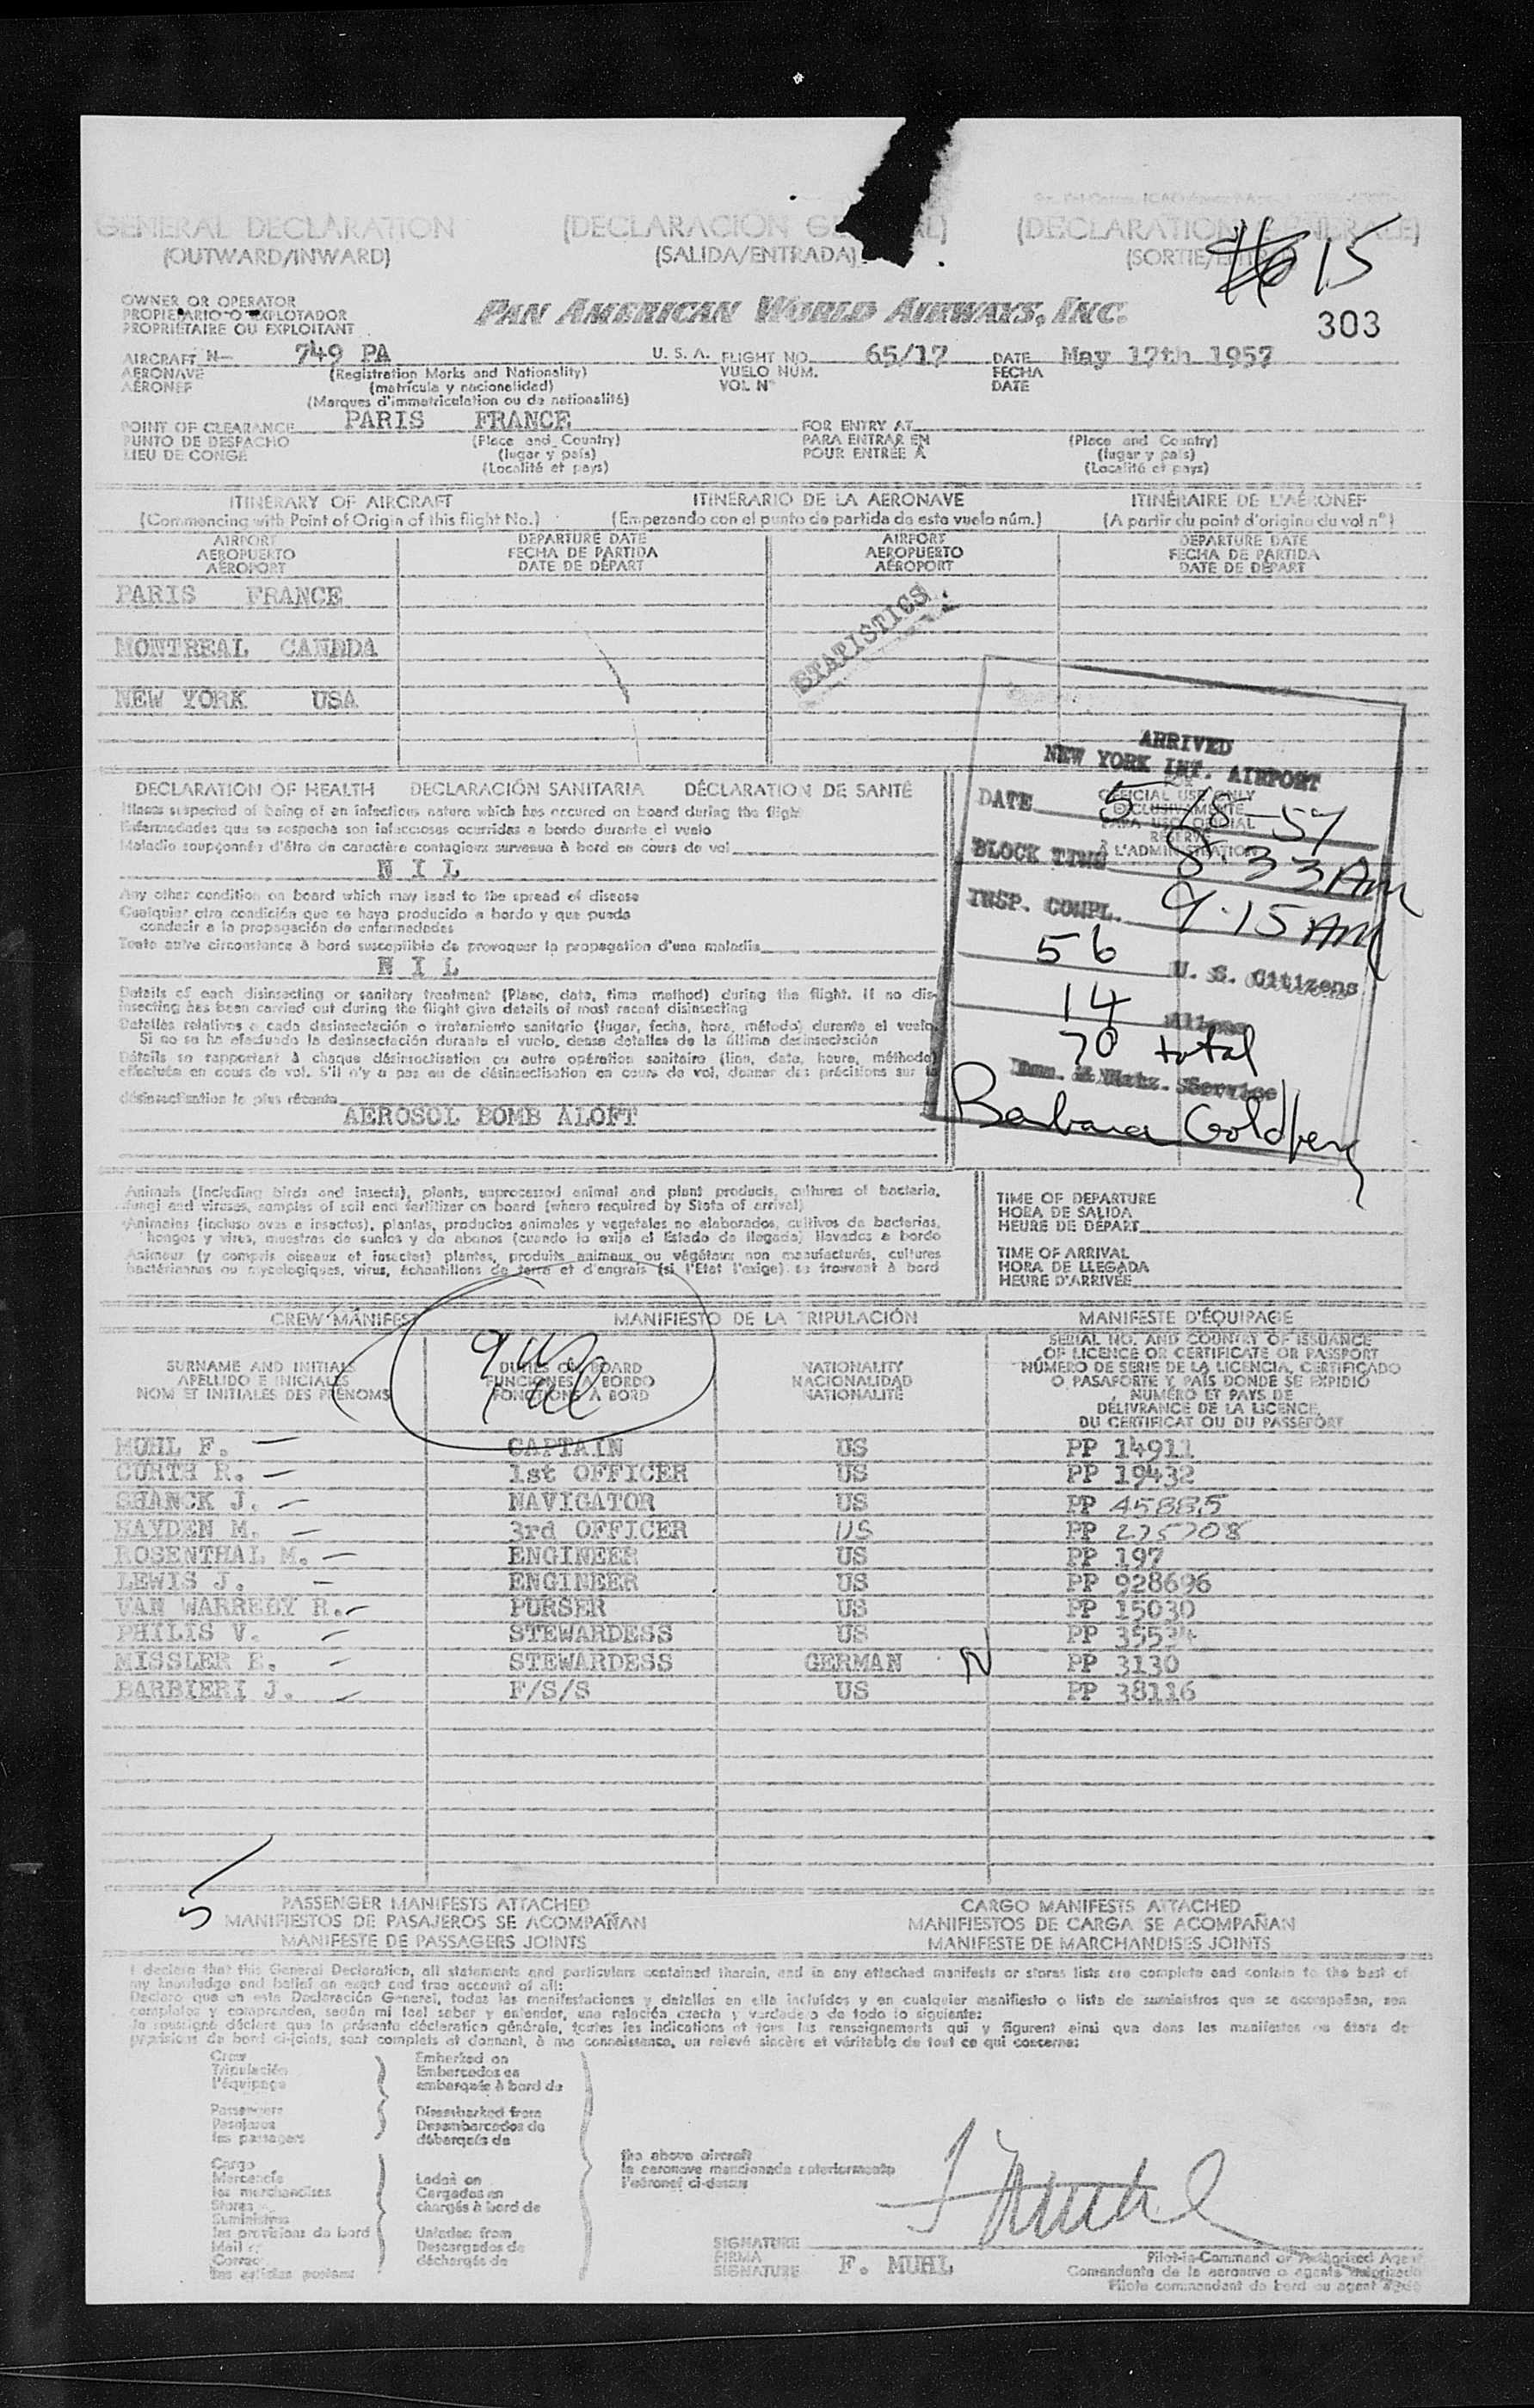 GENERAL DECLARATION (DECLARACION GENERAL) (DECLARATION GENERALE)
(OUTWARD/INWARD) (SALIDA/ENTRADA) (SORTIE/
15
303
OWNER OR OPERATOR
PROPIETARIO O EXPLOTADOR
PROPRIÉTAIRE OU EXPLOITANT
PAN AMERICAN WORLD AIRWAYS, INC.
AIRCRAFT N- 749 PA U. S. A. FLIGHT NO. 65/17 DATE May 17th 1957
AERONAVE (Registration Marks and Nationality) VUELO NÚM. FECHA
AÉRONEF (matrícula y nacionalidad) VOL N° DATE
(Marques d'immatriculation ou de nationalité)
POINT OF CLEARANCE PARIS FRANCE FOR ENTRY AT
PUNTO DE DESPACHO (Place and Country) PARA ENTRAR EN (Place and Country)
LIEU DE CONGÉ (lugar y país) POUR ENTRÉE À (lugar y país)
(Localité et pays) (Localité et pays)
ITINERARY OF AIRCRAFT ITINERARIO DE LA AERONAVE ITINÉRAIRE DE L'AÉRONEF
(Commencing with Point of Origin of this flight No.) (Empezando con el punto de partida de este vuelo núm.) (A partir du point d'origine du vol n°)
AIRPORT DEPARTURE DATE AIRPORT DEPARTURE DATE
AEROPUERTO FECHA DE PARTIDA AEROPUERTO FECHA DE PARTIDA
AÉROPORT DATE DE DÉPART AÉROPORT DATE DE DÉPART
PARIS FRANCE
STATISTICS
MONTREAL CANDDA
NEW YORK USA
ARRIVED
NEW YORK INT. AIRPORT
FOR
OFFICIAL USE ONLY
EXCLUSIVAMENTE
PARA USO OFICIAL
RÉSERVÉ
À L'ADMINISTRATION
DATE 5-18-57
BLOCK TIME 8:33 AM
INSP. COMPL. 9.15 AM
56 U. S. Citizens
14 Aliens
70 total
Imm. & Natz. Service
Barbara Goldberg
DECLARATION OF HEALTH DECLARACIÓN SANITARIA DÉCLARATION DE SANTÉ
Illness suspected of being of an infectious nature which has occured on board during the flight
Enfermedades que se sospecha son infecciosas ocurridas a bordo durante el vuelo
Maladie soupçonnée d'être de caractère contagieux survenue à bord en cours de vol
N I L
Any other condition on board which may lead to the spread of disease
Cualquier otra condición que se haya producido a bordo y que pueda
conducir a la propagación de enfermedades
Toute autre circonstance à bord susceptible de provoquer la propagation d'une maladie
N I L
Details of each disinsecting or sanitary treatment (Place, date, time method) during the flight. If no dis-
insecting has been carried out during the flight give details of most recent disinsecting
Detalles relativos a cada desinsectación o tratamiento sanitario (lugar, fecha, hora, método) durante el vuelo.
Si no se ha efectuado la desinsectación durante el vuelo, dense detalles de la última desinsectación
Détails se rapportant à chaque désinsectisation ou autre opération sanitaire (lieu, date, heure, méthode)
effectuée en cours de vol. S'il n'y a pas eu de désinsectisation en cours de vol, donner des précisions sur la
désinsectisation la plus récente
AEROSOL BOMB ALOFT
Animals (including birds and insects), plants, unprocessed animal and plant products, cultures of bacteria,
fungi and viruses, samples of soil and fertilizer on board (where required by State of arrival)
Animales (incluso aves e insectos), plantas, productos animales y vegetales no elaborados, cultivos de bacterias,
hongos y virus, muestras de suelos y de abonos (cuando lo exija el Estado de llegada) llevados a bordo
Animaux (y compris oiseaux et insectes) plantes, produits animaux ou végétaux non manufacturés, cultures
bactériennes ou mycologiques, virus, échantillons de terre et d'engrais (si l'Etat l'exige) se trouvant à bord
TIME OF DEPARTURE
HORA DE SALIDA
HEURE DE DÉPART
TIME OF ARRIVAL
HORA DE LLEGADA
HEURE D'ARRIVÉE
CREW MANIFEST MANIFIESTO DE LA TRIPULACIÓN MANIFESTE D'ÉQUIPAGE
9 US
SURNAME AND INITIALS
APELLIDO E INICIALES
NOM ET INITIALES DES PRÉNOMS
DUTIES ON BOARD
FUNCIONES A BORDO
FONCTIONS À BORD
NATIONALITY
NACIONALIDAD
NATIONALITÉ
SERIAL NO. AND COUNTRY OF ISSUANCE
OF LICENCE OR CERTIFICATE OR PASSPORT
NÚMERO DE SERIE DE LA LICENCIA, CERTIFICADO
O PASAPORTE Y PAÍS DONDE SE EXPIDIÓ
NUMÉRO ET PAYS DE
DÉLIVRANCE DE LA LICENCE,
DU CERTIFICAT OU DU PASSEPORT
MUHL F. CAPTAIN US PP 14911
CURTH R. 1st OFFICER US PP 19432
SHANCK J. NAVIGATOR US PP 45885
HAYDEN M. 3rd OFFICER US PP 225708
ROSENTHAL M. ENGINEER US PP 197
LEWIS J. ENGINEER US PP 928696
VAN WARREBY R. PURSER US PP 15030
PHILIS V. STEWARDESS US PP 35534
MISSLER E. STEWARDESS GERMAN N PP 3130
BARBIERI J. F/S/S US PP 38116
5
PASSENGER MANIFESTS ATTACHED CARGO MANIFESTS ATTACHED
MANIFIESTOS DE PASAJEROS SE ACOMPAÑAN MANIFIESTOS DE CARGA SE ACOMPAÑAN
MANIFESTE DE PASSAGERS JOINTS MANIFESTE DE MARCHANDISES JOINTS
I declare that this General Declaration, all statements and particulars contained therein, and in any attached manifests or stores lists are complete and contain to the best of
my knowledge and belief an exact and true account of all:
Declaro que en esta Declaración General, todas las manifestaciones y detalles en ella incluídos y en cualquier manifiesto o lista de suministros que se acompañan, son
completos y comprenden, según mi leal saber y entender, una relación exacta y verdadera de todo lo siguiente:
Je soussigné déclare que la présente déclaration générale, toutes les indications et tous les renseignements qui y figurent ainsi que dans les manifestes ou états de
provisions de bord ci-joints, sont complets et donnent, à ma connaissance, un relevé sincère et véritable de tout ce qui concerne:
Crew
Tripulación
l'équipage
Passengers
Pasajeros
les passagers
Cargo
Mercancía
les marchandises
Stores
Suministros
les provisions de bord
Mail
Correo
les articles postaux
Embarked on
Embarcados en
embarqués à bord de
Disembarked from
Desembarcados de
débarqués de
Laden on
Cargados en
chargés à bord de
Unladen from
Descargados de
déchargés de
the above aircraft
la aeronave mencionada anteriormente
l'aéronef ci-dessus
F Muhl
SIGNATURE
FIRMA
SIGNATURE
F. MUHL
Pilot-in-Command or Authorized Agent
Comandante de la aeronave o agente autorizado
Pilote commandant de bord ou agent